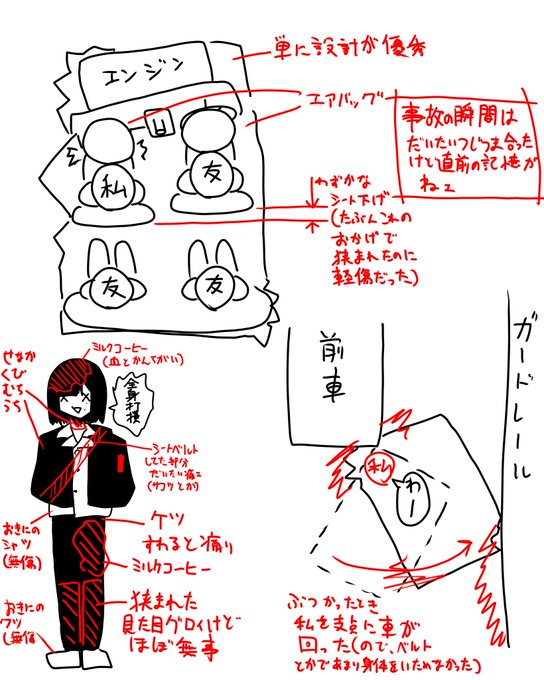 エンジン
単に設計が優秀
エアバッグ
事故の瞬間は
だいたいつじつま合った
けど直前の記憶が
ねェ
私
友
わずかな
シート下げ
(たぶんこれの
おかげで
挟まれたのに
軽傷だった)
友
友
せなか
くび
むち
うち
ミルクコーヒー
(血とかんちがい)
全身打撲
シートベルト
してた部分
だいたい痛ェ
(サコツとか)
おきにの
シャツ
(無傷)
ケツ
すわると痛い
ミルクコーヒー
挟まれた
見た目グロイけど
ほぼ無事
おきにの
クツ
(無傷
前車
ガードレール
私
わー
ぶつかったとき
私を支点に車が
回った(ので、ベルト
とかであまり身体をいためなかった)